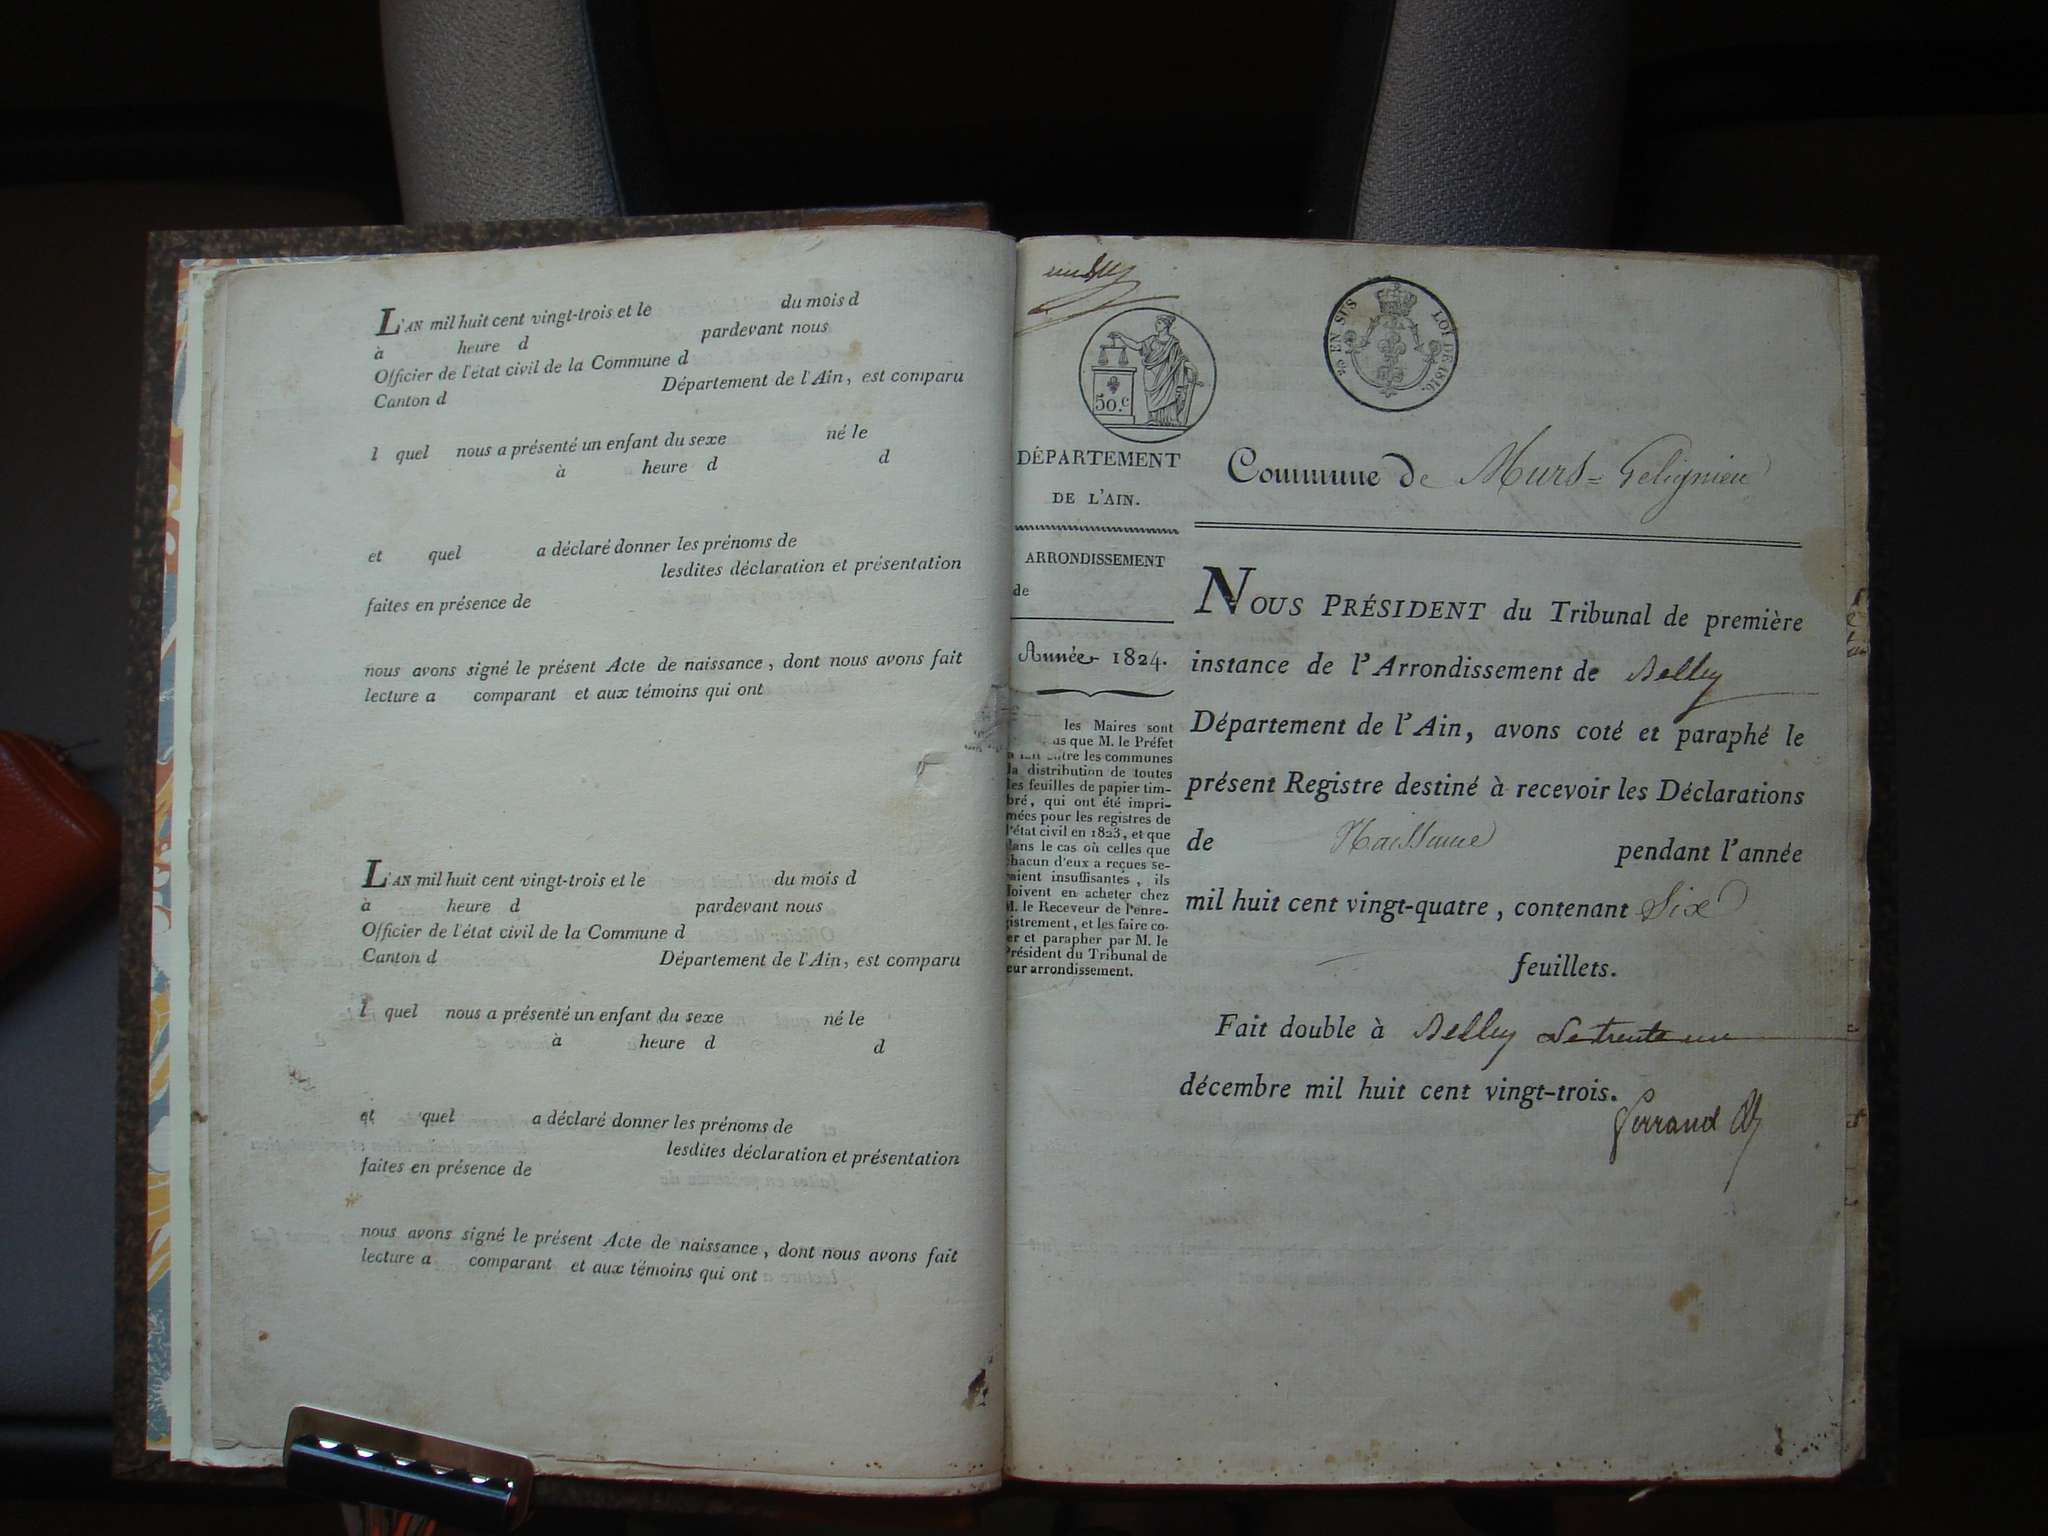 L'AN mil huit cent vingt-trois et le du mois d
à heure d pardevant nous
Officier de l'état civil de la Commune d
Canton d Département de l'Ain, est comparu
l quel nous a présenté un enfant du sexe né le
à heure d d
et quel a déclaré donner les prénoms de
lesdites déclaration et présentation
faites en présence de
nous avons signé le présent Acte de naissance, dont nous avons fait
lecture a comparant et aux témoins qui ont
L'AN mil huit cent vingt-trois et le du mois d
à heure d pardevant nous
Officier de l'état civil de la Commune d
Canton d Département de l'Ain, est comparu
l quel nous a présenté un enfant du sexe né le
à heure d d
et quel a déclaré donner les prénoms de
lesdites déclaration et présentation
faites en présence de
nous avons signé le présent Acte de naissance, dont nous avons fait
lecture a comparant et aux témoins qui ont
50.c
EN SUS LOI DE 1816.
DÉPARTEMENT
DE L'AIN.
ARRONDISSEMENT
de
Année 1824.
les Maires sont
que M. le Préfet
les communes
la distribution de toutes
les feuilles de papier tim-
bré, qui ont été impri-
mées pour les registres de
l'état civil en 1823, et que
dans le cas où celles que
chacun d'eux a reçues se-
raient insuffisantes, ils
doivent en acheter chez
M. le Receveur de l'enre-
gistrement, et les faire co-
ter et parapher par M. le
Président du Tribunal de
leur arrondissement.
Commune de Murs=Gelignieu
NOUS PRÉSIDENT du Tribunal de première
instance de l'Arrondissement de Belley
Département de l'Ain, avons coté et paraphé le
présent Registre destiné à recevoir les Déclarations
de Naissance pendant l'année
mil huit cent vingt-quatre, contenant Six
feuillets.
Fait double à Belley Le trente un
décembre mil huit cent vingt-trois.